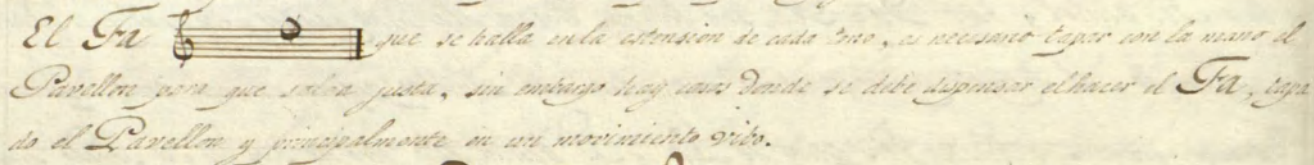 El Fa que se halla en la estension de cada tono, es necesario tapar con la mano el
Pavellon para que salga justa, sin embargo hay casos donde se debe dispensar el hacer el Fa, tapa
do el Pavellon y principalmente en un movimiento vibo.